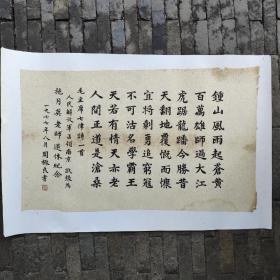 鍾山風雨起蒼黃
百萬雄師過大江
虎踞龍蟠今勝昔
天翻地覆慨而慷
宜將剩勇追窮寇
不可沽名學霸王
天若有情天亦老
人間正道是滄桑
毛主席七律詩一首
人民解放軍占領南京 敬錄為
施月老師 退休紀念
一九七七年八月周民書